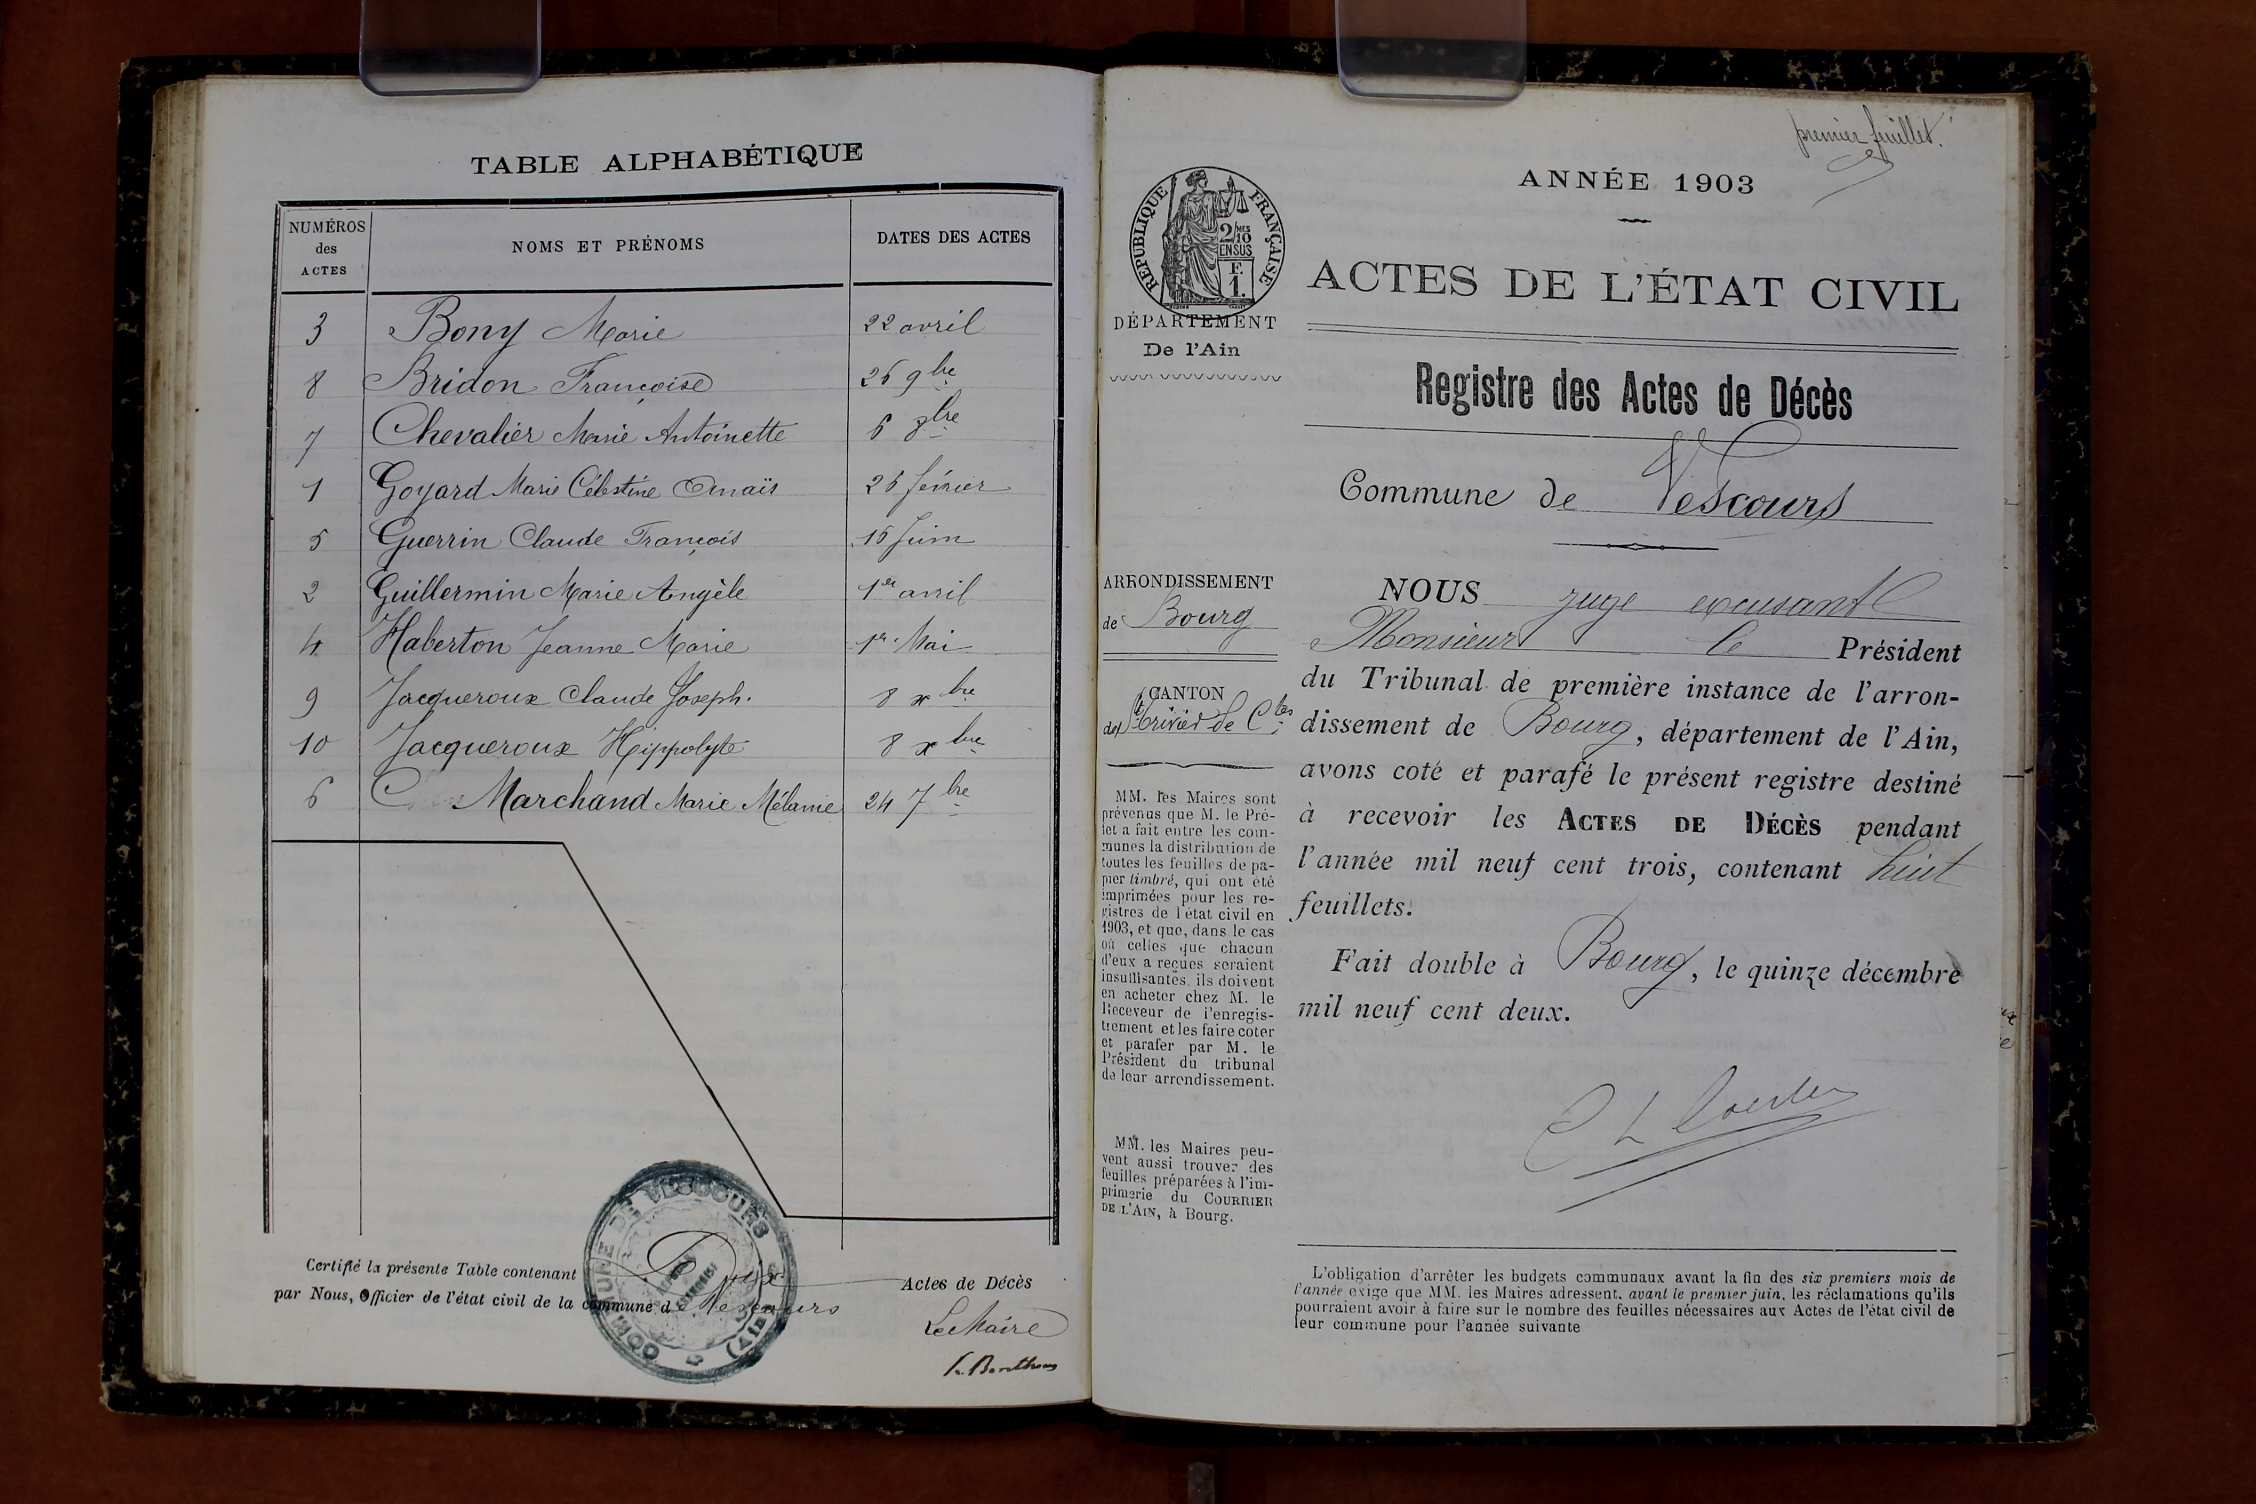 TABLE ALPHABÉTIQUE
NUMÉROS des ACTES NOMS ET PRÉNOMS DATES DES ACTES
3 Bony Marie 22 avril
8 Bridon Françoise 26 9bre
7 Chevalier Marie Antoinette 6 8bre
1 Goyard Marie Célestine Anaïs 26 février
5 Guerrin Claude François 16 Juin
2 Guillermin Marie Angèle 1er avril
4 Haberton Jeanne Marie 1er Mai
9 Jacqueroux Claude Joseph. 8 xbre
10 Jacqueroux Hippolyte 8 xbre
6 Marchand Marie Mélanie 24 7bre
Certifié la présente Table contenant Dix Actes de Décès
par Nous, Officier de l'état civil de la commune d Vescours
COMMUNE DE VESCOURS (Ain)
Le Maire
premier feuillet.
ANNÉE 1903
RÉPUBLIQUE FRANÇAISE
2/10 MES
EN SUS
F.
1.
ACTES DE L'ÉTAT CIVIL
DÉPARTEMENT
De l'Ain
Registre des Actes de Décès
Commune de Vescours
ARRONDISSEMENT
de Bourg
CANTON
de St Trivier de Ctes
MM. les Maires sont
prévenus que M. le Pré-
fet a fait entre les com-
munes la distribution de
toutes les feuilles de pa-
pier timbré, qui ont été
imprimées pour les re-
gistres de l'état civil en
1903, et que, dans le cas
où celles que chacun
d'eux a reçues seraient
insuffisantes, ils doivent
en acheter chez M. le
Receveur de l'enregis-
trement et les faire coter
et parafer par M. le
Président du tribunal
de leur arrondissement.
MM. les Maires peu-
vent aussi trouver des
feuilles préparées à l'im-
primerie du COURRIER
DE L'AIN, à Bourg.
NOUS juge excusant
Monsieur le Président
du Tribunal de première instance de l'arron-
dissement de Bourg, département de l'Ain,
avons coté et parafé le présent registre destiné
à recevoir les ACTES DE DÉCÈS pendant
l'année mil neuf cent trois, contenant huit
feuillets.
Fait double à Bourg, le quinze décembre
mil neuf cent deux.
L'obligation d'arrêter les budgets communaux avant la fin des six premiers mois de
l'année exige que MM. les Maires adressent, avant le premier juin, les réclamations qu'ils
pourraient avoir à faire sur le nombre des feuilles nécessaires aux Actes de l'état civil de
leur commune pour l'année suivante